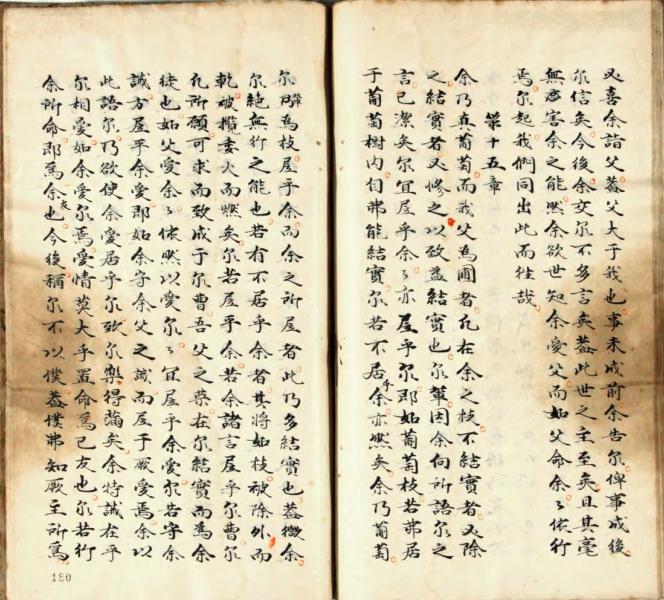 又喜余詣父蓋父大于我也事未成前余告尔俾事成後
尔信矣今後余交尔不多言矣蓋此世之主至矣且其毫
無害余之能然余欲世知余愛父而如父命余〻依行
焉尔起我們同出此而往哉
第十五章
余乃真葡萄而我父為圃者凡在余之枝不結實者又除
之結實者又修之以致益結實也尔輩因余向所語尔之
言已潔矣尔宜居乎余〻亦居乎尔即如葡萄枝若弗居
于葡萄樹內自弗能結實尔若不居乎余亦然矣余乃葡萄
尔為枝居乎余而余之所居者此乃多結實也蓋微余
尔絕無行之能也若有不居乎余者其將如枝被除外而
乾被攬委火而燃矣尔若居乎余若余諸言居乎尔曹尔
凡所願可求而致成于尔曹吾父之榮在尔結實而為余
徒也如父愛余〻依然以愛尔〻宜居乎余愛尔若守余
誡方居乎余愛即如余守余父之誡而居于厥愛焉余以
此語尔乃欲使余愛居乎尔致尔樂得滿矣余特誡在乎
尔相愛如余愛尔焉愛情莫大乎置命為己友也尔若行
余所命即為余友也今後稱尔不以僕蓋僕弗知厥主所為
180